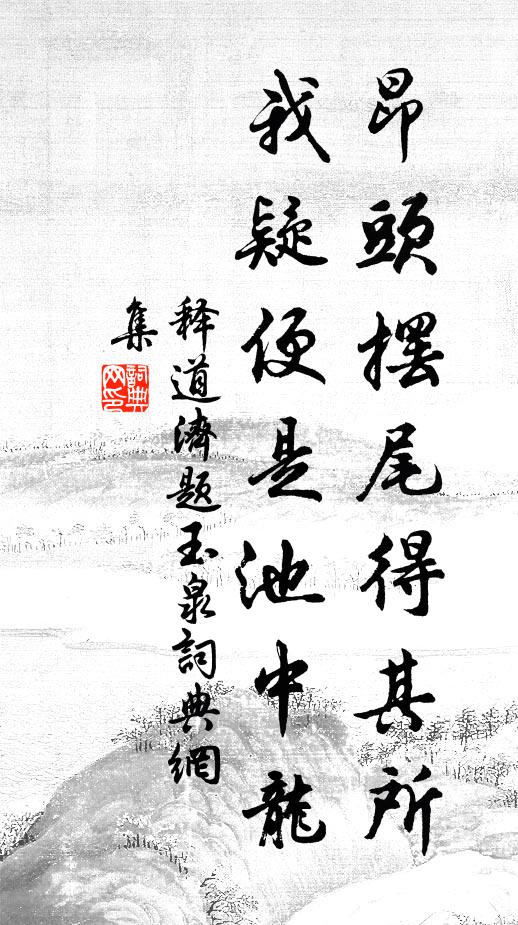 昂頭擺尾得其所
我疑便是池中龍
释道濟題玉泉詞典網
集
詞典
网印